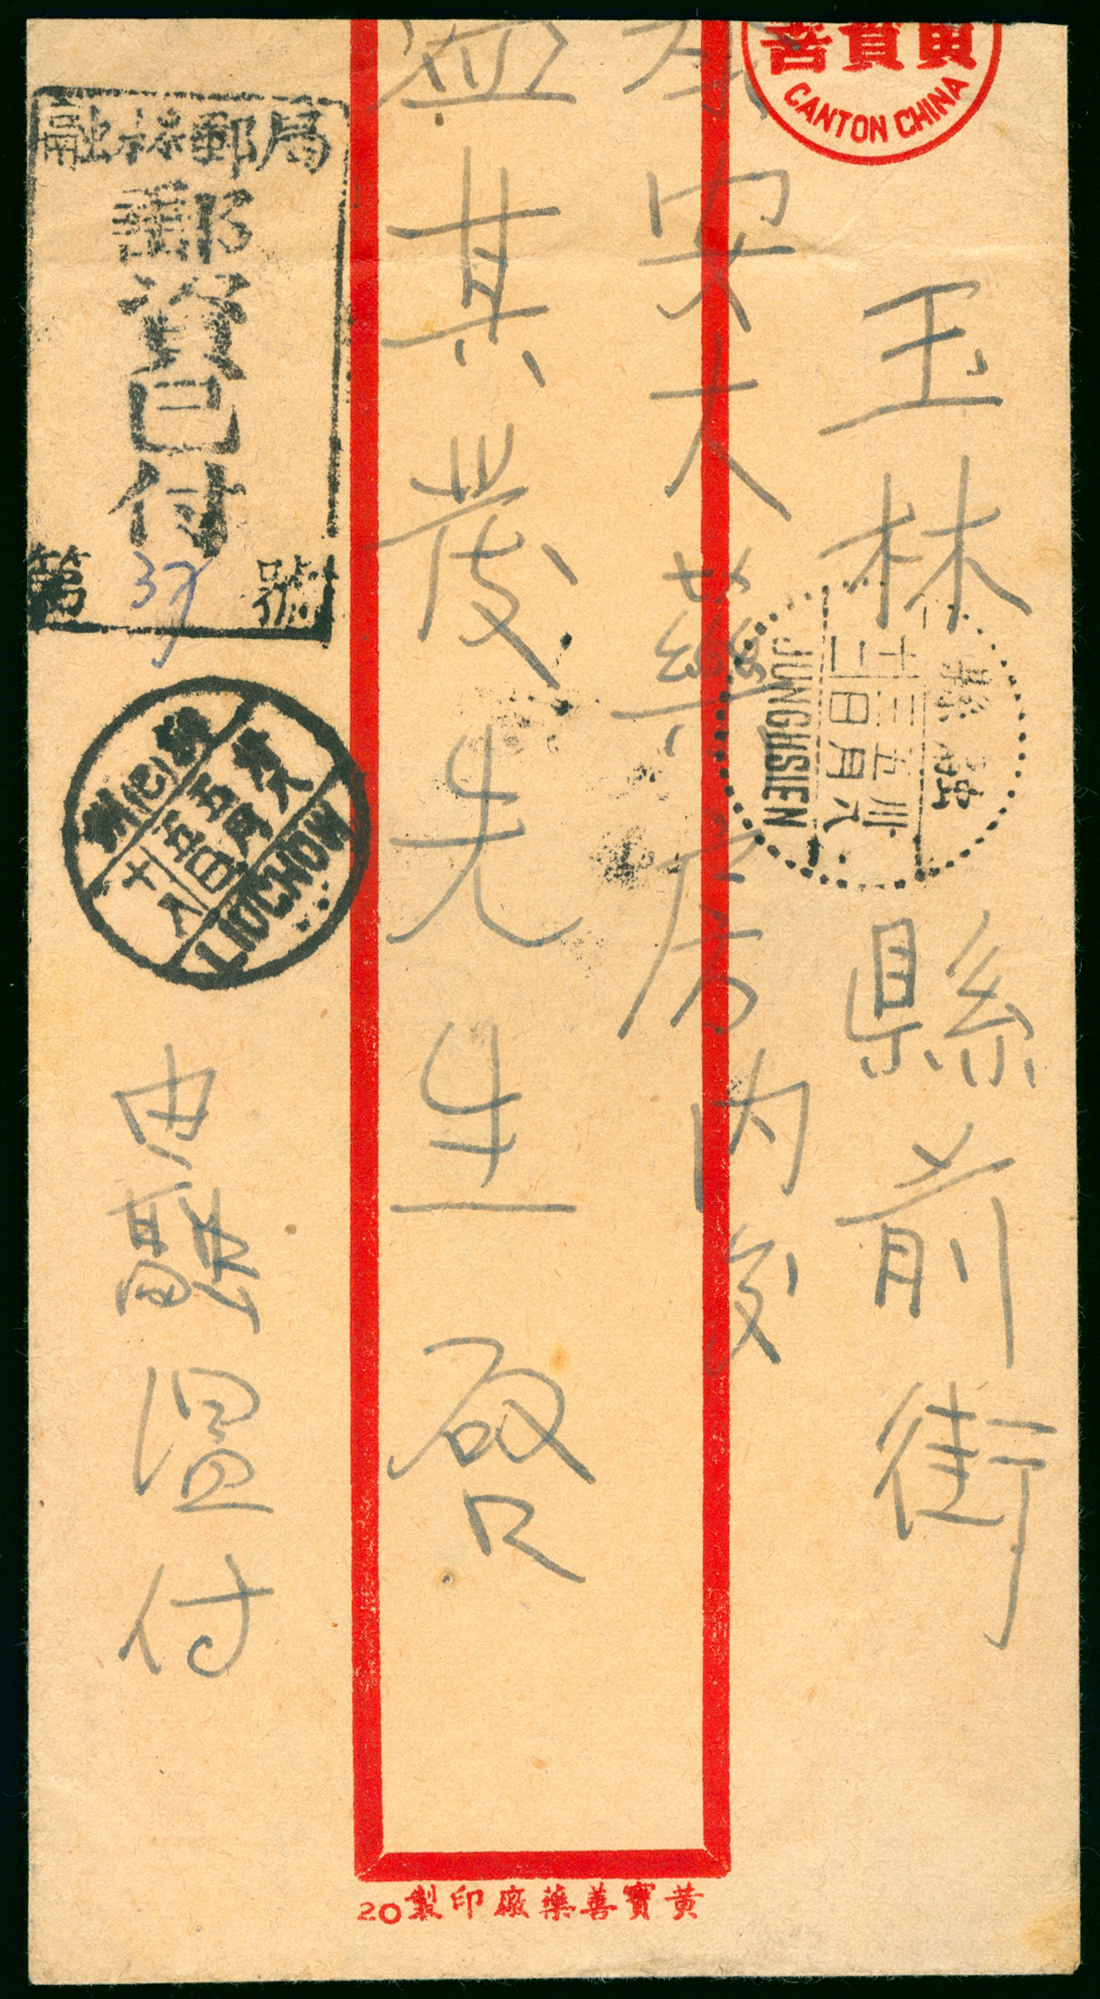 黃寶善
CANTON CHINA
玉林縣前街
安大藥房內交
其發先生啓
由融温付
融縣郵局
郵資已付
第 37 號
JUNGHSIEN
融縣
卅八
五月
三日
十二
LIUCHOW
五月
五日
十八
黃寶善藥廠印製20